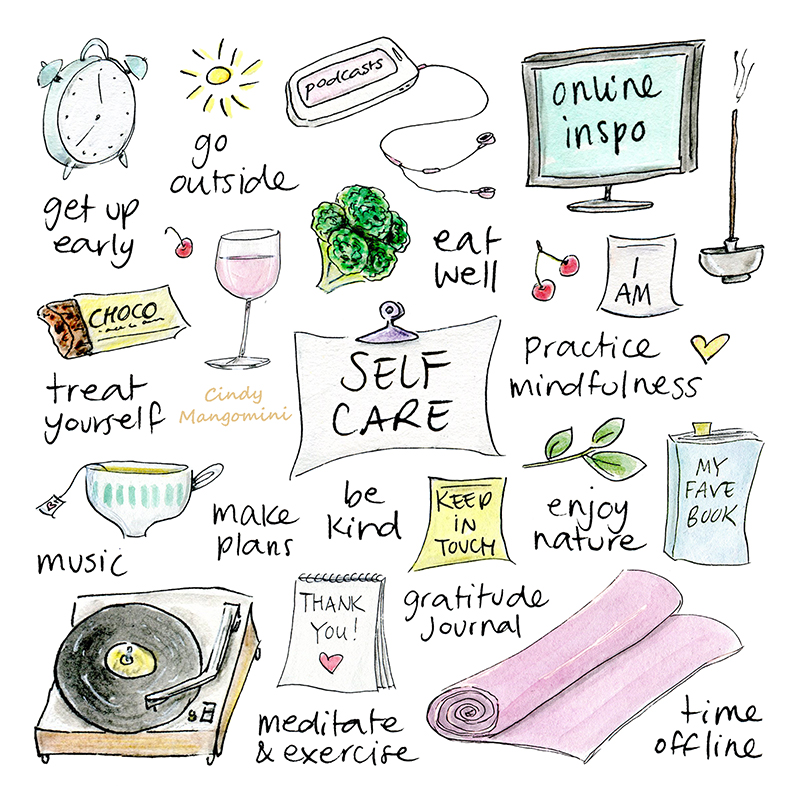 podcasts
online
inspo
go
outside
get up
early
eat
well
I
AM
CHOCO
SELF
CARE
practice
mindfulness
treat
yourself
Cindy
Mangomini
MY
FAVE
BOOK
KEEP
IN
TOUCH
be
kind
enjoy
nature
make
plans
music
THANK
YOU!
gratitude
journal
meditate
& exercise
time
offline